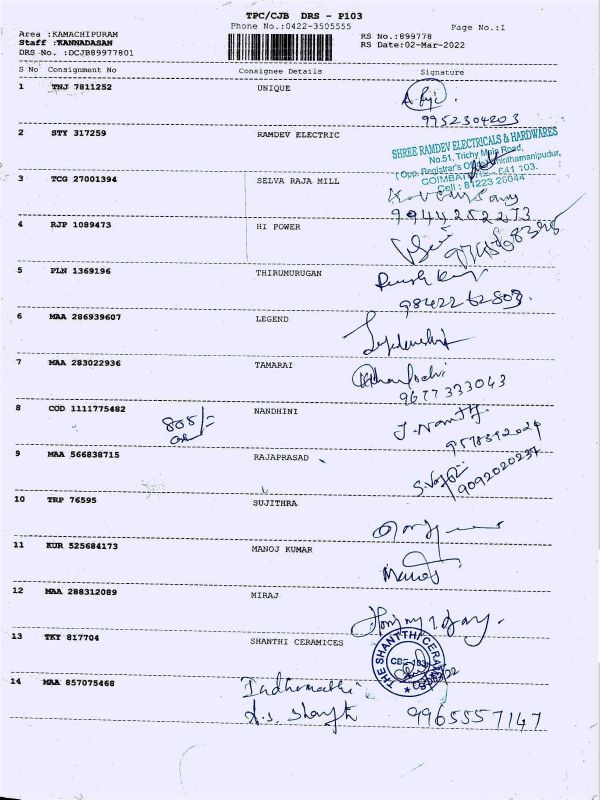 TPC/CJB DRS - P103
Phone No.:0422-3505555
Page No.:1
Area :KAMACHIPURAM
RS No.:899778
Staff :KANNADASAN
RS Date:02-Mar-2022
DRS No. :DCJB89977801
S No Consignment No Consignee Details Signature
1 TNJ 7811252 UNIQUE
9952304203
2 STY 317259 RAMDEV ELECTRIC
SHREE RAMDEV ELECTRICALS & HARDWARES
No.51, Trichy Main Road,
(Opp. Registrar's
COIMBATORE - 641 103.
Cell : 81223 26044
3 TCG 27001394 SELVA RAJA MILL
9944252273
4 RJP 1089473 HI POWER
5 PLN 1369196 THIRUMURUGAN
9842262803.
6 MAA 286939607 LEGEND
7 MAA 283022936 TAMARAI
9677333043
8 COD 1111775482 805/= NANDHINI
9 MAA 566838715 RAJAPRASAD
9092020237
10 TRP 76595 SUJITHRA
11 KUR 525684173 MANOJ KUMAR
Manoj
12 MAA 288312089 MIRAJ
13 TKY 817704 SHANTHI CERAMICES
THE SHANTTHI CERAMICS
CBE-103
14 MAA 857075468 Indhumathi
9965557147